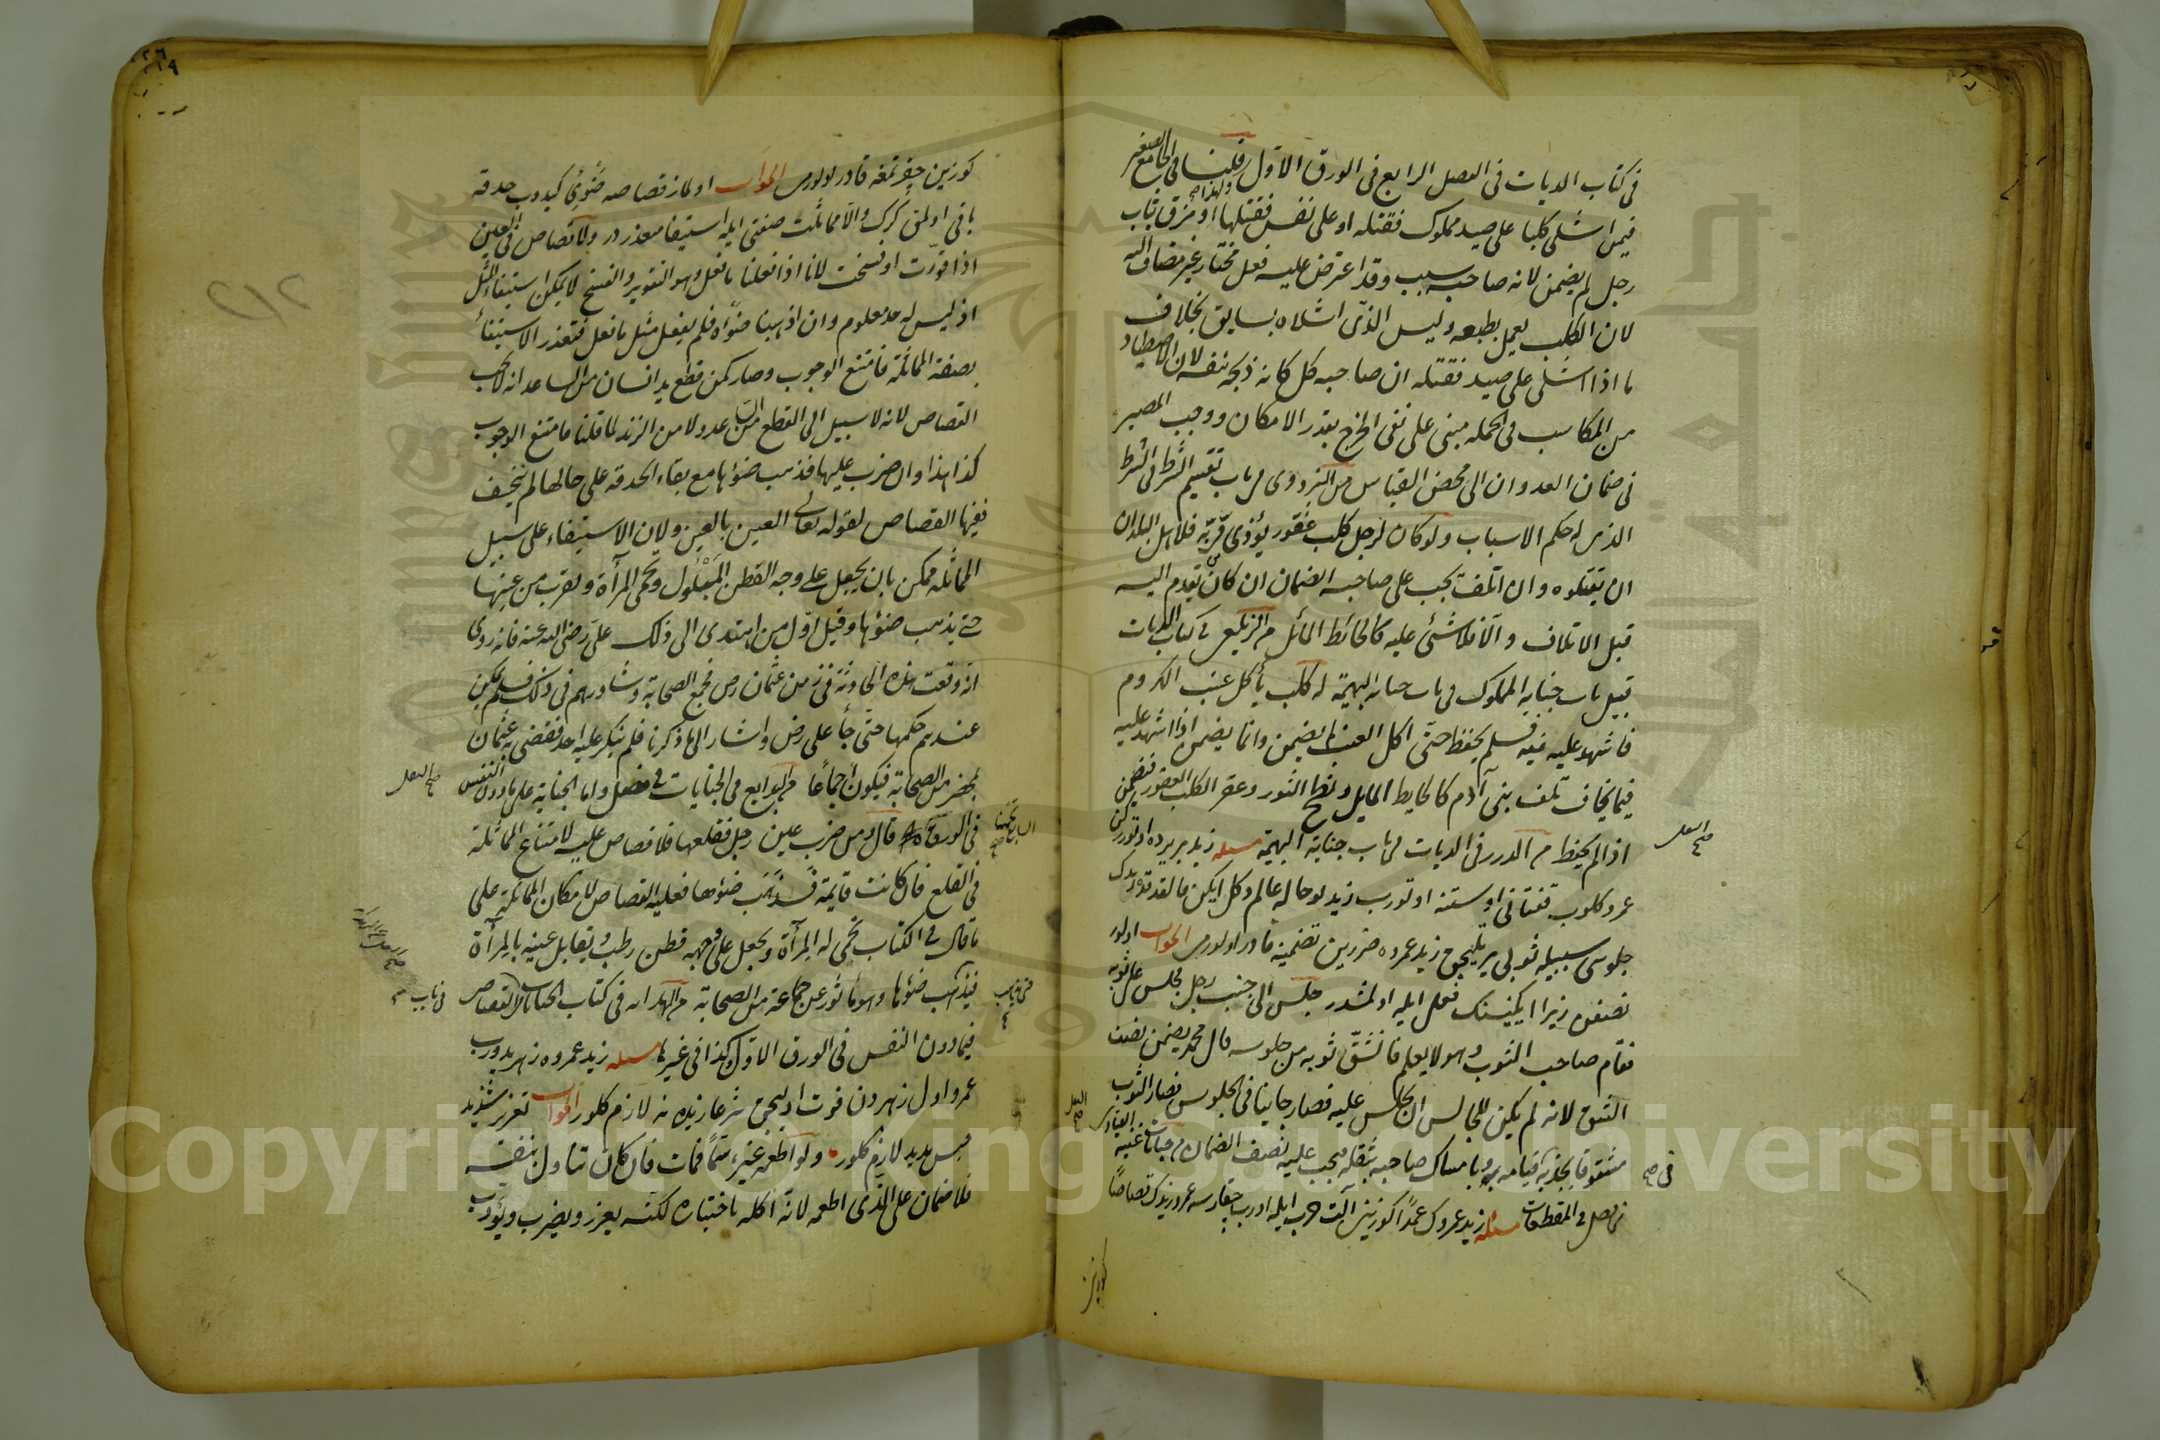 فى كتاب الديات فى الفصل الرابع فى الورق الاول وقلنا فى الجامع الصغير
فيمن اشلى كلبا على صيد مملوك فقتله او على نفس فقتلها او مزق ثياب
رجل لم يضمن لانه صاحب سبب وقد اعترض عليه فعل مختار غير مضاف اليه
لان الكلب يعمل بطبعه وليس الذى اشلاه بسايق بخلاف
ما اذا اشلى على صيد فقتله ان صاحبه كل كانه ذبحه بنفسه لان الاصطياد
من المكاسب فى الجملة مبنى على نفى الحرج بقدر الامكان ووجب المصير
فى ضمان العدوان الى محض القياس من البزدوى فى باب تقسيم الشرط فى الشرط
الذى له حكم الاسباب ولو كان لرجل كلب عقور يؤذى من مر به فلاهل البلد ان
ان يقتلوه وان اتلف يجب على صاحبه الضمان ان كان تقدم اليه
قبل الاتلاف والا فلا شئ عليه كالحائط المائل من الزيلعى فى كتاب الديات
قبيل باب جناية المملوك فى باب جناية البهيمة له كلب يأكل عنب الكروم
فاشهد عليه فيه فلم يحفظ حتى اكل العنب لم يضمن وانما يضمن اذا اشهد عليه
فيما يخاف تلف بنى آدم كالحايط المايل ونطح الثور وعقر الكلب العقور فيضمن
اذا لم يحفظ من الدرر فى الديات فى باب جناية البهيمة مسئله زيد بر يرده اوتورركن
عمرو كلوب قفتانى اوستنه اوتورب زيد بو حاله عالم دكل ايكن قالقدقده
جلوسى سبيله ثوبى يرتلیجق زيد عمروه ضررين تضمينه قادر اولورمى الجواب اولور
نصفن زيرا ايكيسنك فعلى ايله اولمشدر جلس الى جنب رجل فجلس على ثوبه
فقام صاحب الثوب وهو لا يعلم فانشق ثوبه من جلوسه قال محمد يضمن نصف
الشق لانه لم يكن للجالس ان يجلس عليه فصار جانيا فى الجلوس فصار الثوب
مشقوقا بجذبه قيامه وبامساك صاحبه بثقله فيجب عليه نصف الضمان من جنايات غنية
فى فصل فى المقطعات مسئله زيد عمروك عمدا كوزينى آلت حرب ايله اورب چقارسه عمرو زيدك قصاصا
كوزين
كوزين چقرتمغه قادر اولورمى الجواب اولماز قصاصه ضوئى كيدوب حدقه
باقى اولمق كرك والا مماثلت صفتى ايله استيفا معذردر ولا قصاص فى العين
اذا قورت او فسخت لانا اذا فعلنا ما فعل وهو التقوير والفسخ لا يمكن استيفاء المثل
اذ ليس له حد معلوم وان اذهبنا ضوأه فلم يفعل مثل ما فعل فتعذر الاستيفاء
بصفة المماثلة فامتنع الوجوب وصار كمن قطع يد انسان من الساعد انه لا يجب
القصاص لانه لا سبيل الى القطع من الساعد ولا من الزند لما قلنا فامتنع الوجوب
كذا هذا وان ضرب عليها فذهب ضؤها مع بقاء الحدقة على حالها لم تنخسف
ففيها القصاص لقوله تعالى العين بالعين ولان الاستيفاء على سبيل
المماثلة ممكن بان يجعل على وجه القطن المبلول وتحمى المرآة وتقرب من عينها
حتى يذهب ضؤها وقيل اول من اهتدى الى ذلك على رضى الله عنه فانه روى
انه وقعت هذه الحادثة فى زمن عثمان رض فجمع الصحابة وشاورهم فى ذلك فلم يكن
عندهم حكمها حتى جاء على رض واشار الى ما ذكرنا فلم ينكر عليه احد فقضى به عثمان
بمحضر من الصحابة فيكون اجماعا من البدايع فى الجنايات فى فصل واما الجناية على ما دون النفس
فى الورق قال ومن ضرب عين رجل فقلعها فلا قصاص عليه لامتناع المماثلة
فى القلع فان كانت قائمة فذهب ضوءها فعليه القصاص لامكان المماثلة على
ما قال فى الكتاب تحمى له المرآة ويجعل على وجهه قطن رطب ويقابل عينه بالمرآة
فيذهب ضوئها وهو مأثور عن جماعة من الصحابة من الهدايه فى كتاب الجنايات باب القصاص
فيما دون النفس فى الورق الاول كذا فى غيرها مسئله زيد عمروه زهر يدورب
عمرو اول زهردن فوت اولیجق شرعا زيده نه لازم كلور الجواب تعزير شديد
حبس مديد لازم كلور ولو اطعم غيره سما فمات فان كان تناول بنفسه
فلا ضمان على الذى اطعمه لانه اكله باختياره لكنه يعزر ويضرب ويؤدب
Copyright © King Saud University